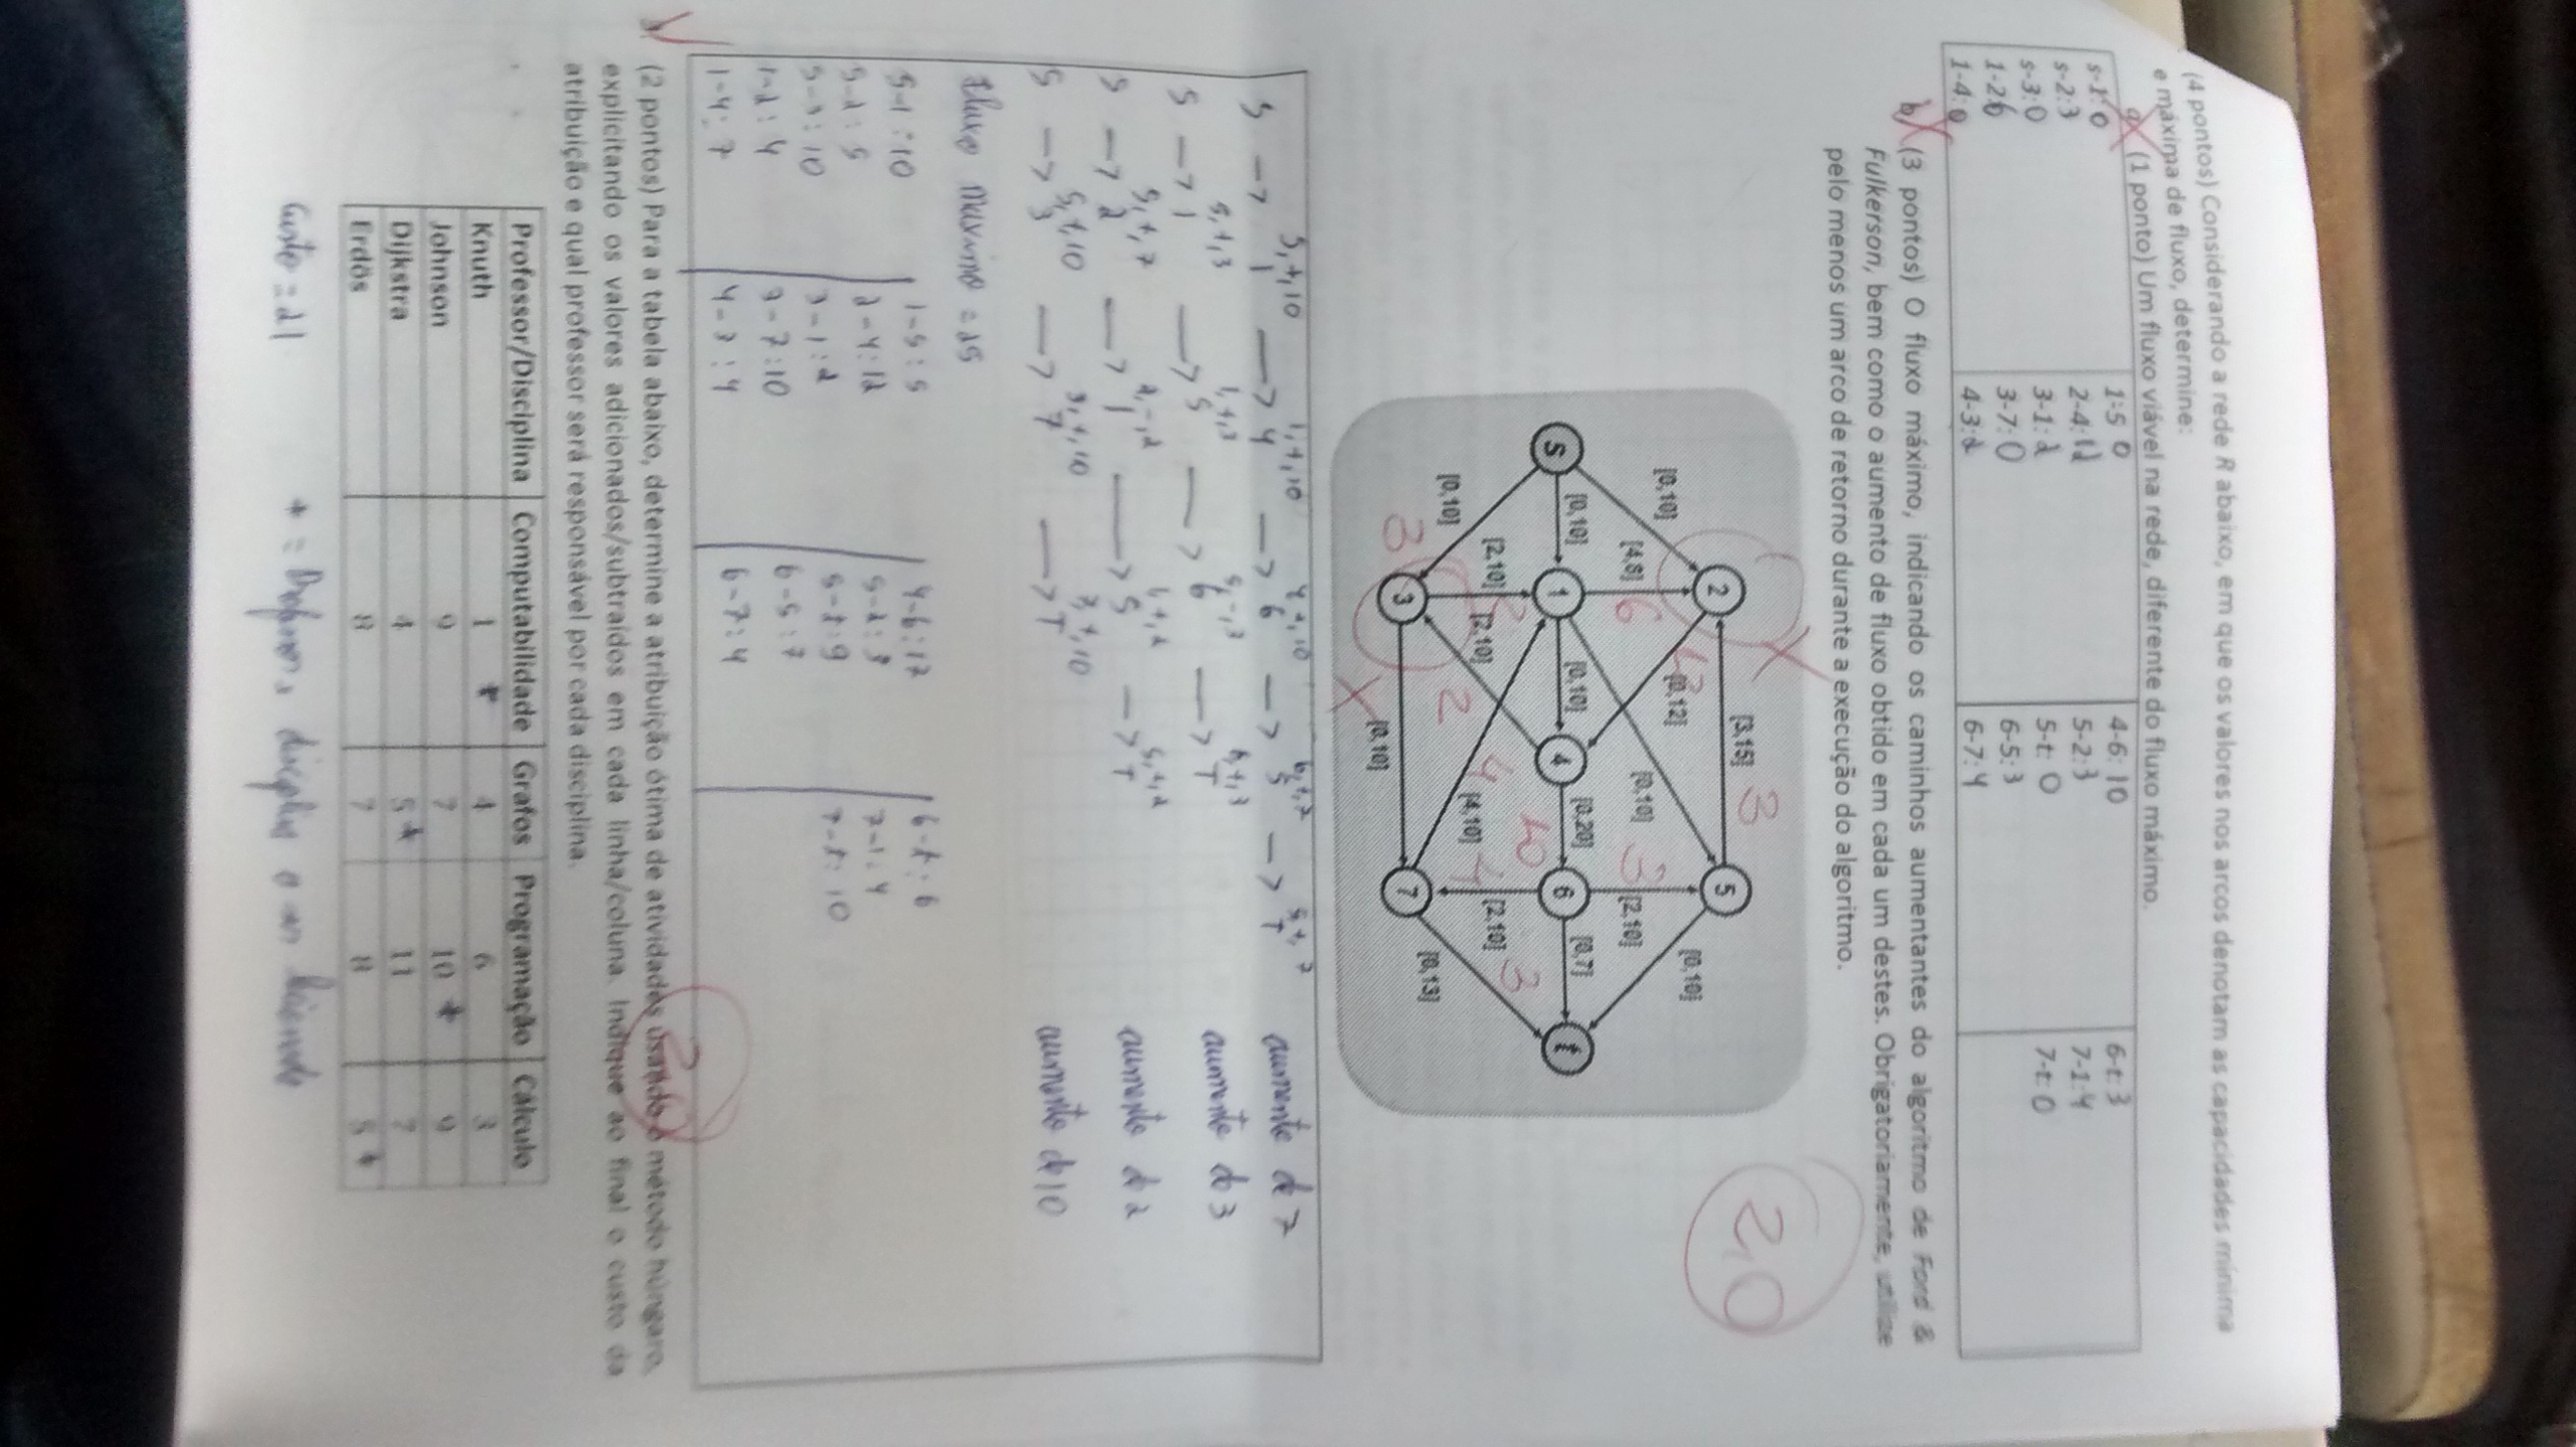 (4 pontos) Considerando a rede R abaixo, em que os valores nos arcos denotam as capacidades mínima
e máxima de fluxo, determine:
a) (1 ponto) Um fluxo viável na rede, diferente do fluxo máximo.
s-1: 0 1-5 0 4-6: 10 6-t: 3
s-2: 3 2-4: 12 5-2: 3 7-1: 4
s-3: 0 3-1: 2 5-t: 0 7-t: 0
1-2: 6 3-7: 0 6-5: 3
1-4: 0 4-3: 2 6-7: 4
b) (3 pontos) O fluxo máximo, indicando os caminhos aumentantes do algoritmo de Ford &
Fulkerson, bem como o aumento de fluxo obtido em cada um destes. Obrigatoriamente, utilize
pelo menos um arco de retorno durante a execução do algoritmo.
2,0
[3,15] 3
2 5
[0,10] 12 [0,12] [0,10]
[4,8] 6 [0,10] 3 [2,10]
[0,10] [0,10] [0,20] [0,7]
s 1 4 6 t
10 3
[2,10] 2 [2,10] 4 [4,10] 4 [2,10]
[0,10] 2 [0,13]
3 3 7
[0,10]
S,+,10 1,+,10 4,+,10 6,+,7 5,+,7
S -> 1 -> 4 -> 6 -> 5 -> T aumento de 7
S,+,3 1,+,3 5,-,3 6,+,3
S -> 1 -> 5 -> 6 -> T aumento de 3
S,+,7 2,-,2 1,+,2 5,+,2
S -> 2 -> 1 -> 5 -> T aumento de 2
S,+,10 3,+,10 7,+,10
S -> 3 -> 7 -> T aumento de 10
Fluxo maximo = 25
S-1: 10 1-5: 5 4-6: 17 6-t: 6
S-2: 5 2-4: 12 5-2: 3 7-1: 4
S-3: 10 3-1: 2 5-t: 9 7-t: 10
1-2: 4 3-7: 10 6-5: 7
1-4: 7 4-3: 4 6-7: 4
2,0
(2 pontos) Para a tabela abaixo, determine a atribuição ótima de atividades usando o método húngaro,
explicitando os valores adicionados/subtraídos em cada linha/coluna. Indique ao final o custo da
atribuição e qual professor será responsável por cada disciplina.
Professor/Disciplina Computabilidade Grafos Programação Cálculo
Knuth 1 * 4 6 3
Johnson 9 7 10 * 9
Dijkstra 4 5 * 11 7
Erdös 8 7 8 5 *
Custo = 21 * =